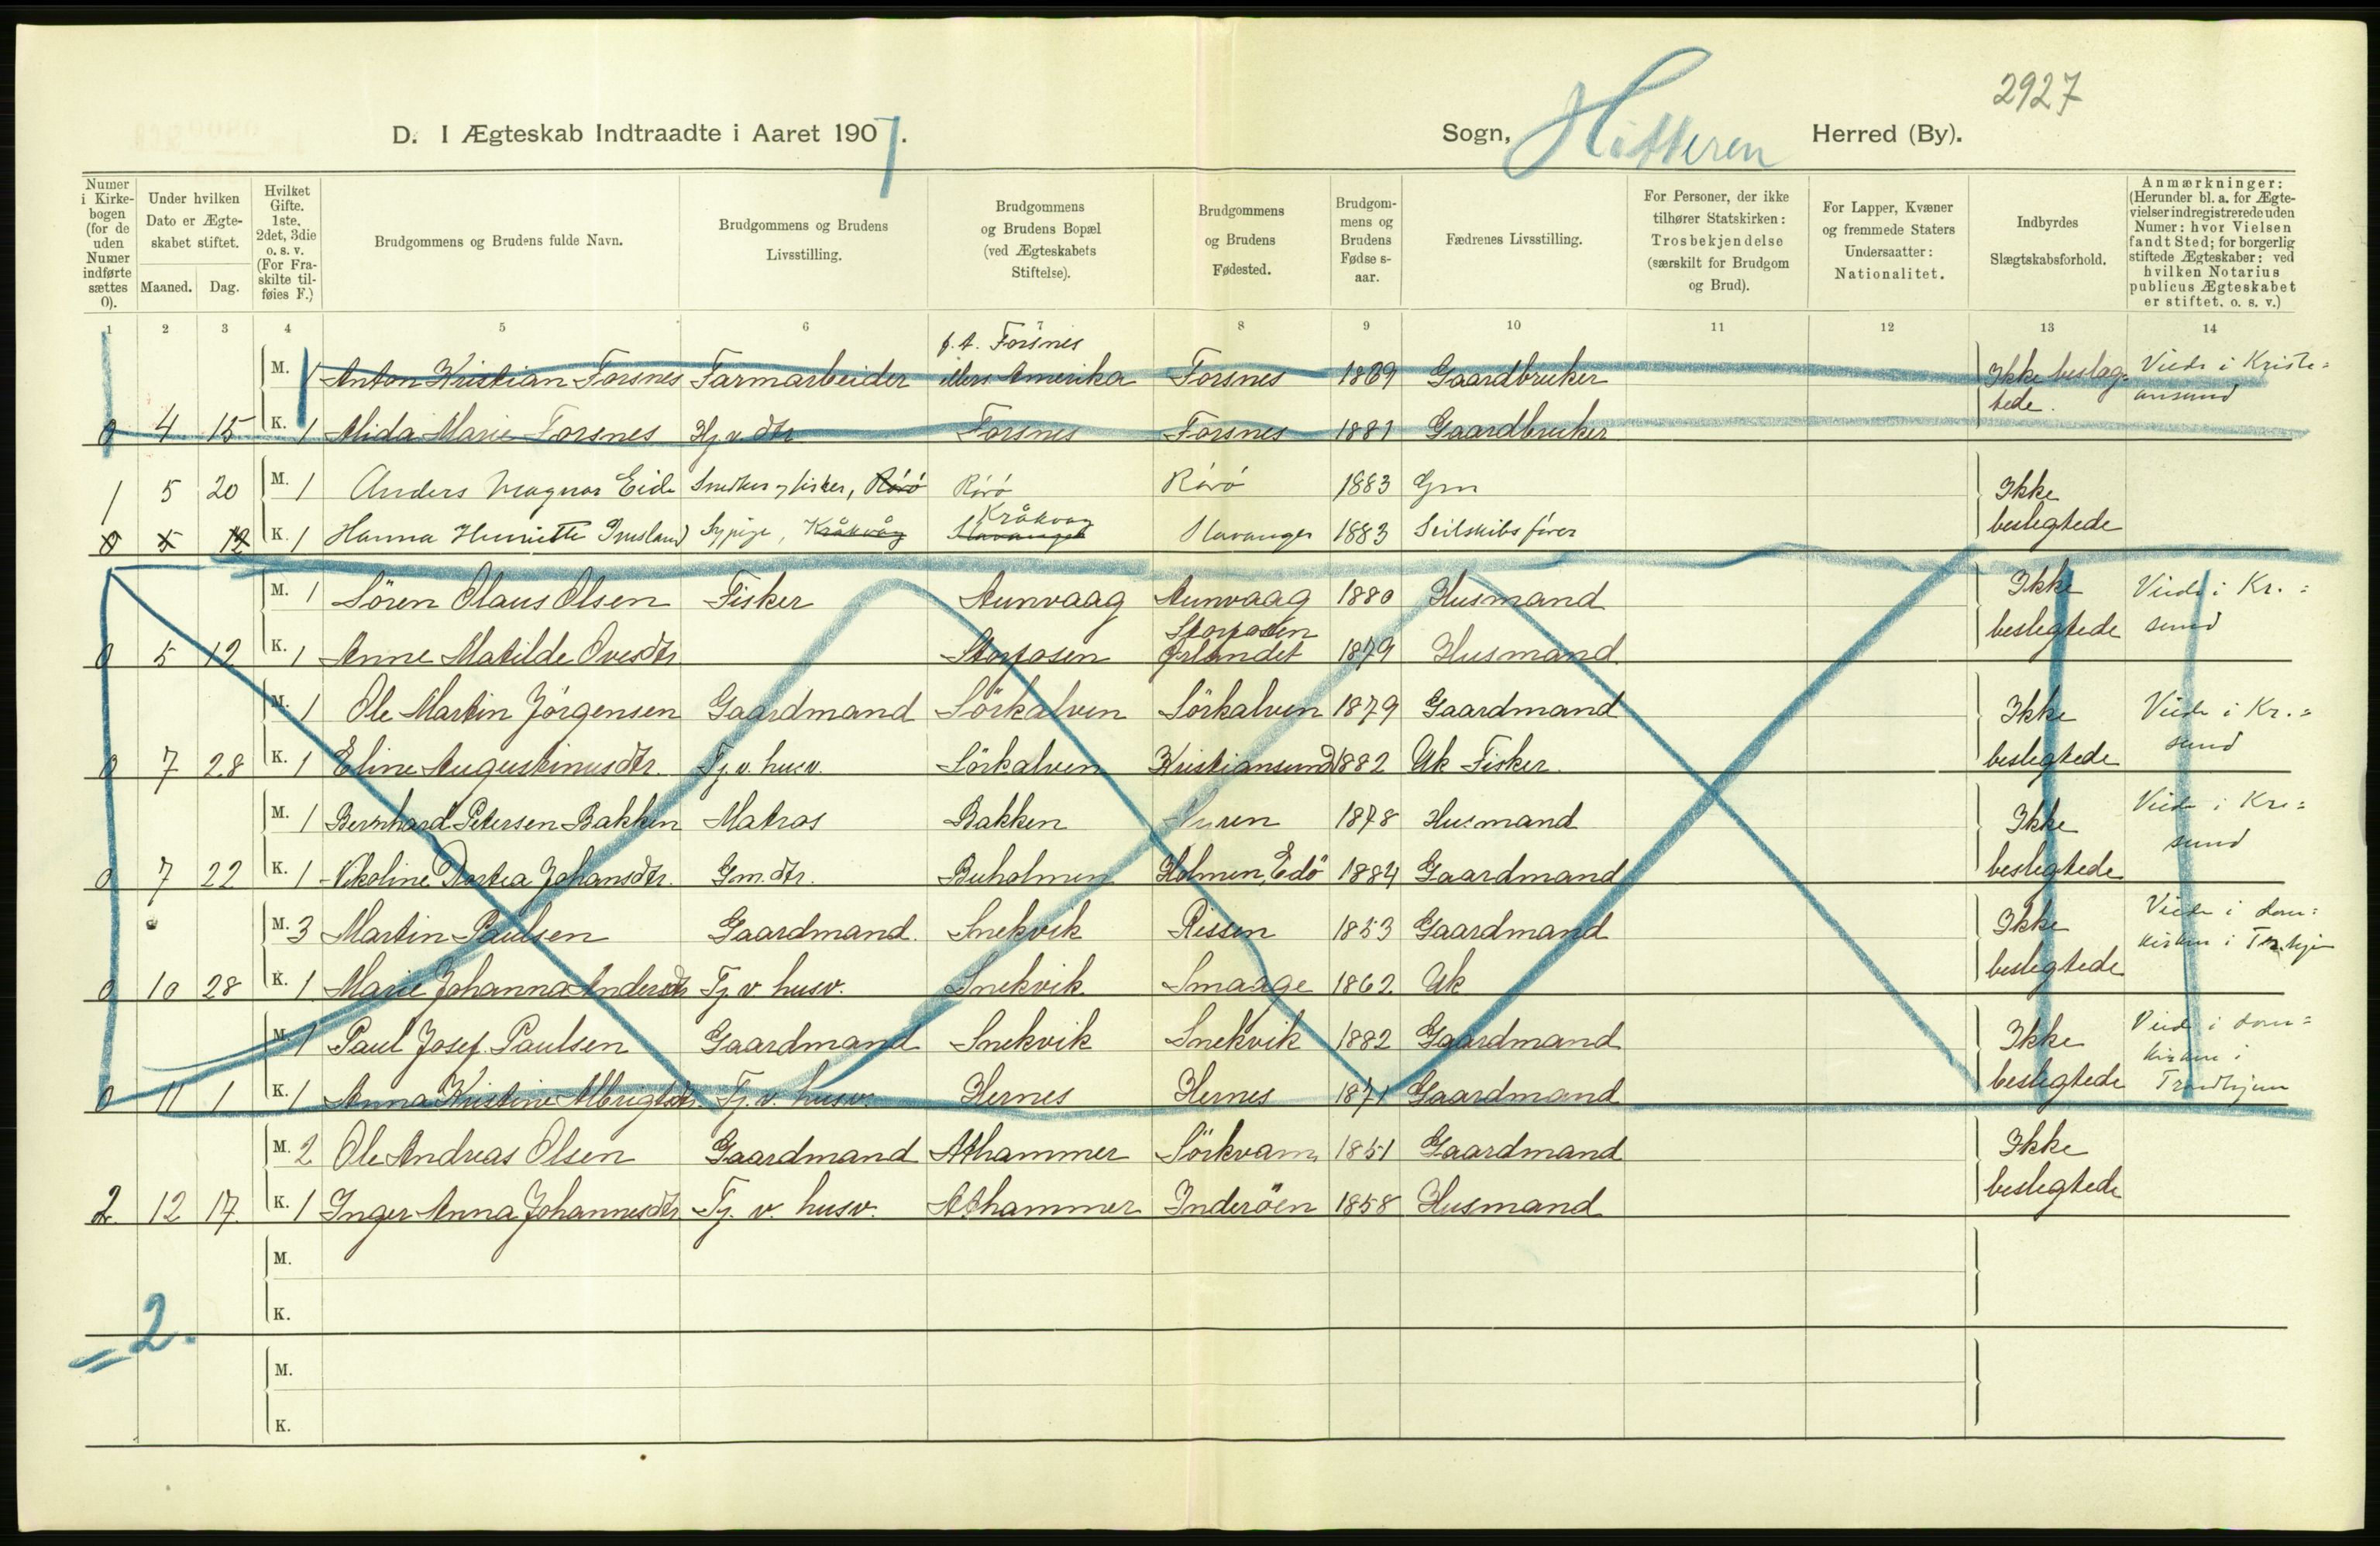 2927
D. I Ægteskab Indtraadte i Aaret 1907.
Sogn, Hitteren Herred (By).
Numer i Kirkebogen (for de uden Numer indførte sættes 0).
Under hvilken Dato er Ægteskabet stiftet.
Maaned. Dag.
Hvilket Gifte. 1ste, 2det, 3die o. s. v. (For Fraskilte tilføies F.)
Brudgommens og Brudens fulde Navn.
Brudgommens og Brudens Livsstilling.
Brudgommens og Brudens Bopæl (ved Ægteskabets Stiftelse).
Brudgommens og Brudens Fødested.
Brudgommens og Brudens Fødse s-aar.
Fædrenes Livsstilling.
For Personer, der ikke tilhører Statskirken: Trosbekjendelse (særskilt for Brudgom og Brud).
For Lapper, Kvæner og fremmede Staters Undersaatter: Nationalitet.
Indbyrdes Slægtskabsforhold.
Anmærkninger: (Herunder bl. a. for Ægtevielser indregistrerede uden Numer: hvor Vielsen fandt Sted; for borgerlig stiftede Ægteskaber: ved hvilken Notarius publicus Ægteskabet er stiftet. o. s. v.)
1 2 3 4 5 6 7 8 9 10 11 12 13 14
M. 1 Anton Kristian Forsnes Farmarbeider f. t. Forsnes ellers Amerika Forsnes 1869 Gaardbruker Ikke beslæg- Viede i Kristi=
0 4 15 K. 1 Alida Marie Forsnes Hj. v. dtr. Forsnes Forsnes 1881 Gaardbruker tede. ansund
1 5 20 M. 1 Anders Magnar Eide Snedker & fisker, Rörö Rörö Rörö 1883 Gm Ikke
0 5 12 K. 1 Hanna Henriette Sypige, Kråkvåg Stavanger Kråkvag Stavanger 1883 Seilskibsfører beslegtede
M. 1 Sören Olaus Olsen Fisker Aunvaag Aunvaag 1880 Husmand Ikke Viede i Kr.=
0 5 12 K. 1 Anne Matilde Ovesdtr. Storfosen Storfosen Ørlandet 1879 Husmand beslegtede sund
M. 1 Ole Martin Jörgensen Gaardmand Sörkalven Sörkalven 1879 Gaardmand Ikke Viede i Kr.=
0 7 28 K. 1 Eline Augustinusdtr. Tj. v. husv. Sörkalven Kristiansund 1882 Uk Fisker. beslegtede sund
M. 1 Bernhard Petersen Bakken Matros Bakken 1878 Husmand Ikke Viede i Kr.=
0 7 22 K. 1 Nikoline Dortea Johansdtr. Gm. dtr. Buholmen Holmen, Edö 1884 Gaardmand beslegtede sund
M. 3 Martin Paulsen Gaardmand. Snekvik Rissen 1853 Gaardmand Ikke Viede i dom=
0 10 28 K. 1 Marie Johanna Andersdtr Tj. v husv. Snekvik Smaage 1862. Uk beslegtede kirken i Tr.hjem
M. 1 Paul Josef Paulsen Gaardmand Snekvik Snekvik 1882 Gaardmand Ikke Viede i dom=
0 11 1 K. 1 Anna Kristine Albrigtsdtr. Tj. v. husv. Hernes Hernes 1871 Gaardmand beslegtede kirken i Trondhjem
M. 2 Ole Andreas Olsen Gaardmand Athammer Sörkvam 1851 Gaardmand Ikke
2 12 17 K. 1 Inger Anna Johannesdtr. Tj. v. husv. Athammer Inderöen 1858 Husmand beslegtede
M.
K.
= 2.
M.
K.